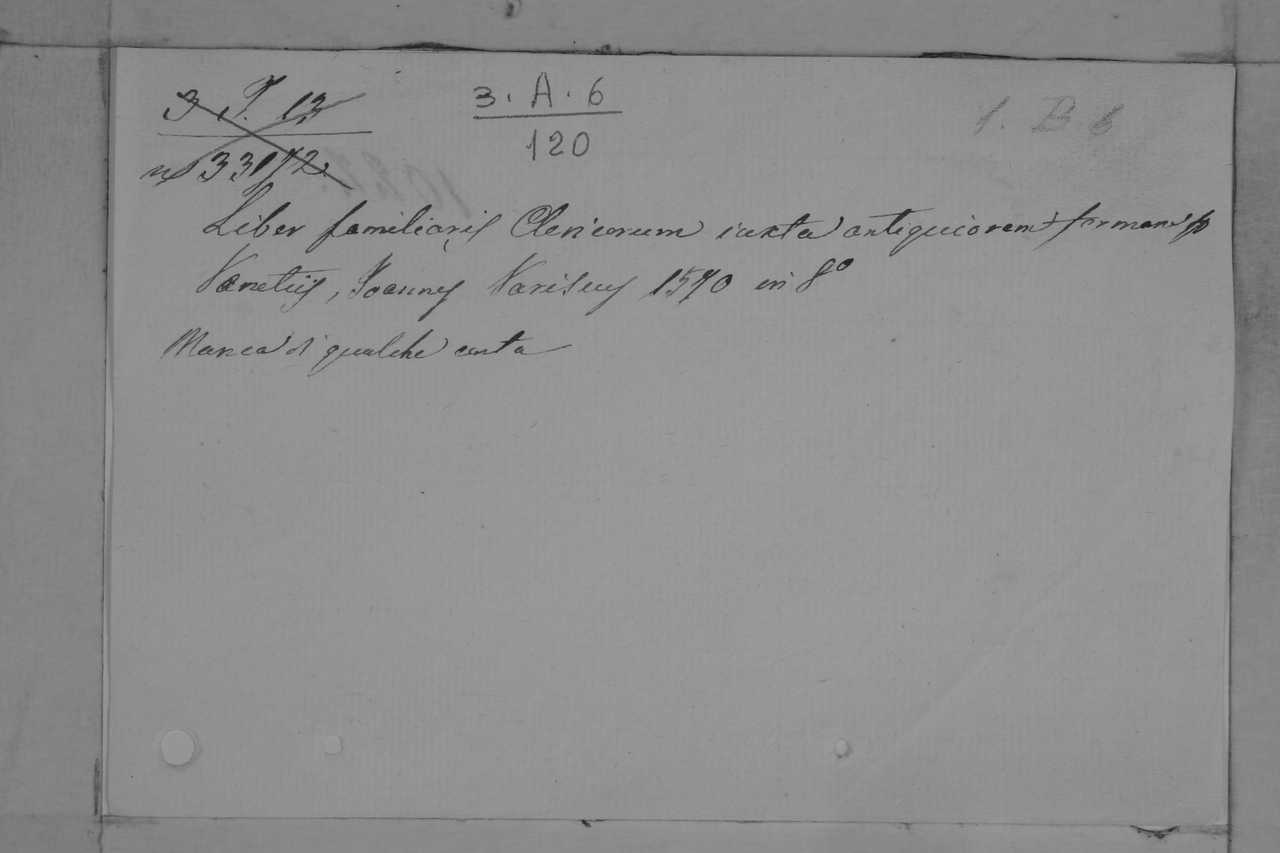 3 T. 13
n° 33172
3. A. 6
120
1. B 6
Liber familiaris Clericorum iuxta antiquiorem formam
Venetiis, Joannes Variscus 1570 in 8°
Manca di qualche carta